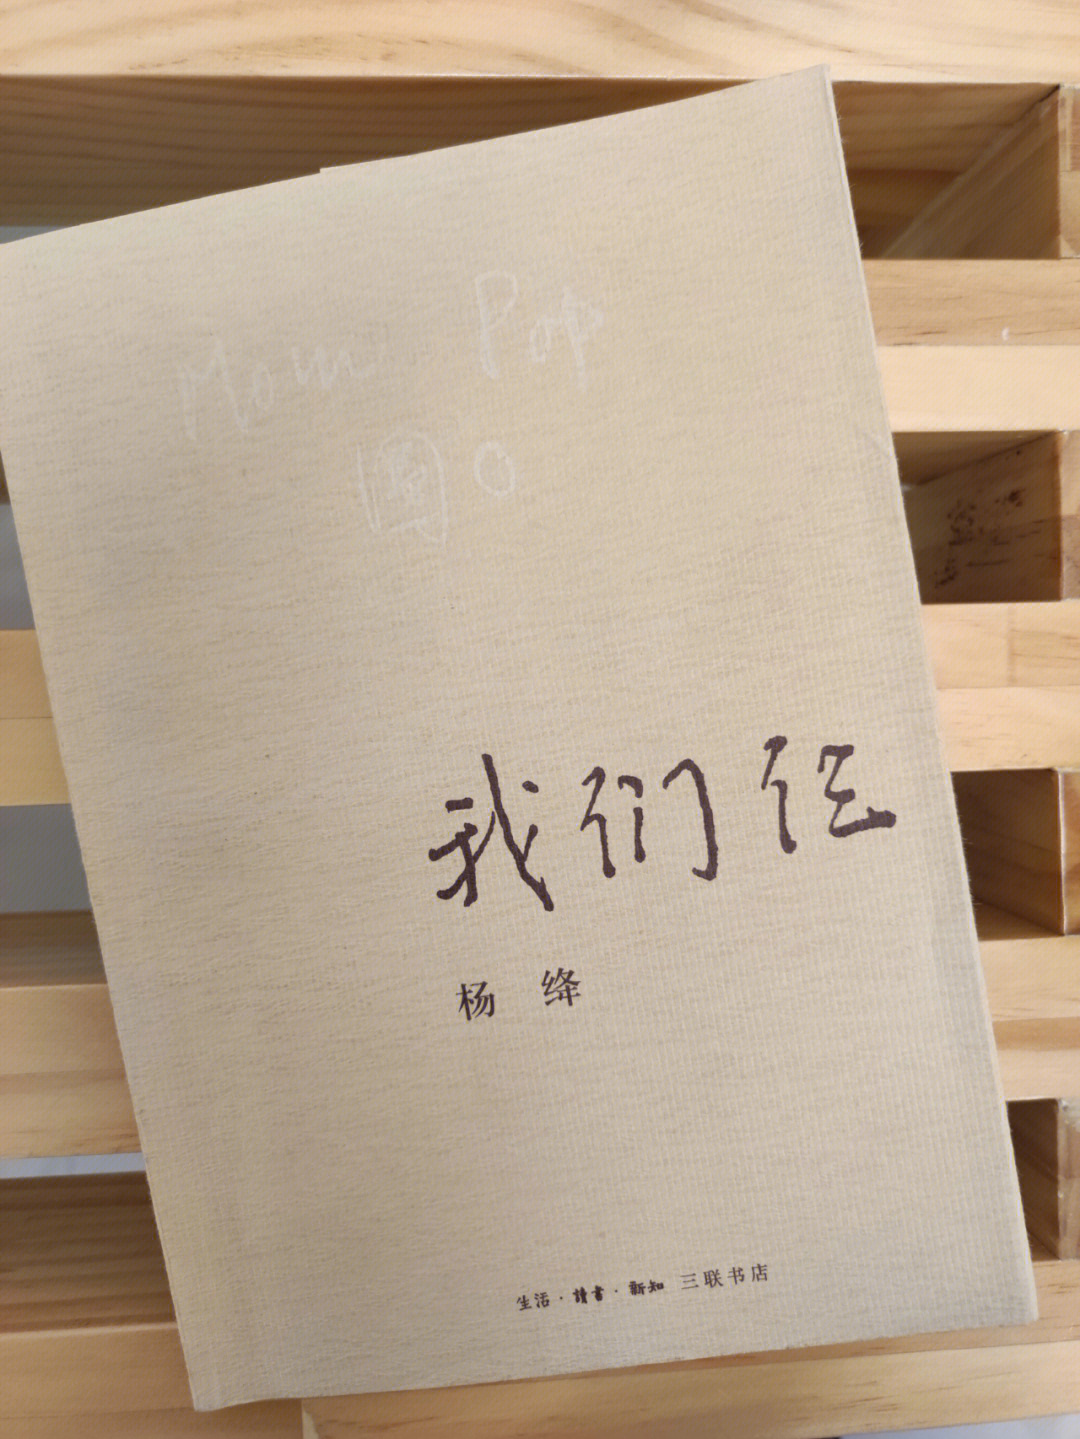 Mom Pop
圆 O
我们仨
杨 绛
生活·讀書·新知 三联书店